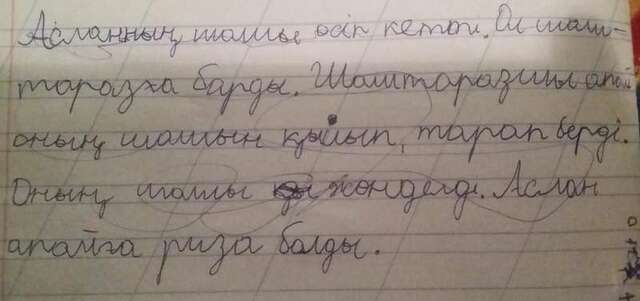 Асланның шашы өсіп кетті. Ол шаш-
таразха барды. Шаштаразшы апай
оның шашын қыйып, тарап берді.
Оның шашы жөнделді. Аслан
апайға риза болды.